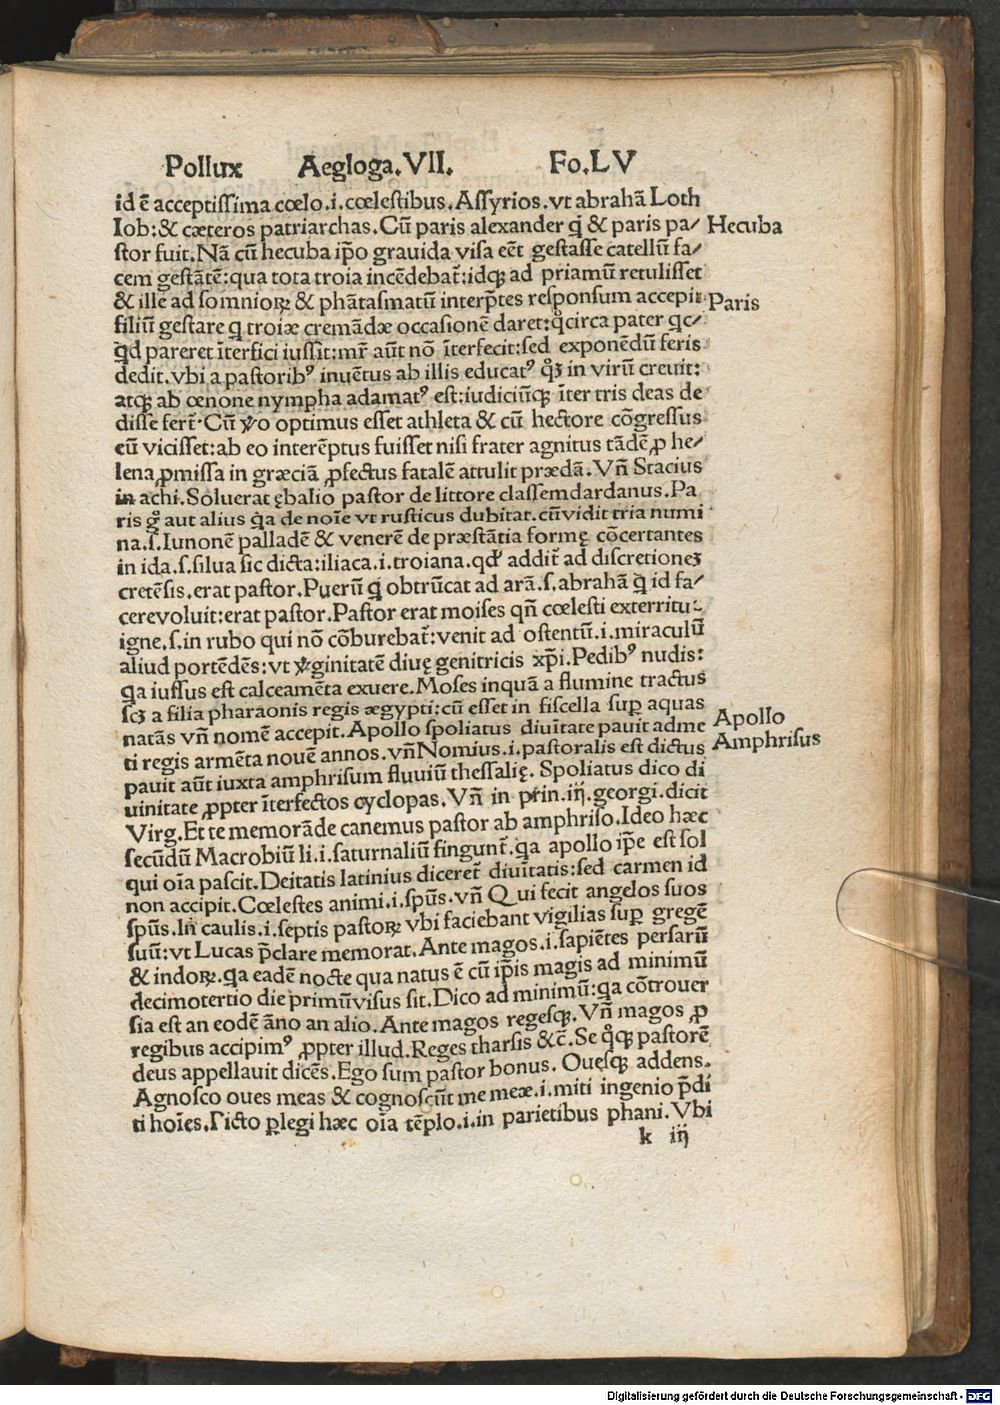 Pollux Aegloga.VII. Fo.LV
id ē acceptissima cœlo.i.cœlestibus.Assyrios.vt abrahā Loth
Iob:& cæteros patriarchas.Cū paris alexander q̄ & paris pa/ Hecuba
stor fuit.Nā cū hecuba ip̄o grauida visa eēt gestasse catellū fa/
cem gestātē:qua tota troia incēdebat̄:idqꝫ ad priamū retulisset
& ille ad somnioꝝ & phātasmatū interp̄tes responsum accepit Paris
filiū gestare q̄ troiæ cremādæ occasionē daret:q̊circa pater qc/
q̄d pareret īterfici iussit:mr̄ aūt nō īterfecit:sed exponēdū feris
dedit.vbi a pastoribꝰ inuētus ab illis educatꝰ qꝫ in virū creuit:
atqꝫ ab œnone nympha adamatꝰ est:iudiciūqꝫ īter tris deas de
disse fert̄.Cū v̊o optimus esset athleta & cū hectore cōgressus
eū vicisset:ab eo interēptus fuisset nisi frater agnitus tādē ꝓ he/
lena ꝓmissa in græciā ꝓfectus fatalē attulit prædā.Vn̄ Stacius
in achi.Soluerat ębalio pastor de littore classemdardanus.Pa
ris g̊ aut alius q̄a de noīe vt rusticus dubitat.cūvidit tria numi
na.s.Iunonē palladē & venerē de præstātia formę cōcertantes
in ida.s.silua sic dicta:iliaca.i.troiana.qd' addit̄ ad discretioneꝫ
cretēsis.erat pastor.Puerū q̄ obtrūcat ad arā.s.abrahā q̄ id fa/
cerevoluit:erat pastor.Pastor erat moises qn̄ cœlesti exterritu
igne.s.in rubo qui nō cōburebat̄:venit ad ostentū.i.miraculū
aliud portēdēs:vt v̊ginitatē diuę genitricis xp̄i.Pedibꝰ nudis:
q̄a iussus est calceamēta exuere.Moses inquā a flumine tractus
scꝫ a filia pharaonis regis ægypti:cū esset in fiscella suꝑ aquas
natās vn̄ nomē accepit.Apollo spoliatus diuītate pauit adme Apollo
ti regis armēta nouē annos.vn̄Nomius.i.pastoralis est dictus Amphrisus
pauit aūt iuxta amphrisum fluuiū thessalię. Spoliatus dico di
uinitate ꝓpter īterfectos cyclopas.Vn̄ in prin.iij.georgi.dicit
Virg.Et te memorāde canemus pastor ab amphriso.Ideo hæc
secūdū Macrobiū li.i.saturnaliū fingunt̄.q̄a apollo ip̄e est sol
qui oīa pascit.Deitatis latinius diceret̄ diuītatis:sed carmen id
non accipit.Cœlestes animi.i.spūs.vn̄ Qui fecit angelos suos
spūs.In caulis.i.septis pastoꝝ vbi faciebant vigilias suꝑ gregē
suū:vt Lucas p̄clare memorat.Ante magos.i.sapiētes persarū
& indoꝝ.q̄a eadē nocte qua natus ē cū ip̄is magis ad minimū
decimotertio die primūvisus sit.Dico ad minimū:q̄a cōtrouer
sia est an eodē āno an alio.Ante magos regesqꝫ.Vn̄ magos ꝓ
regibus accipimꝰ ꝓpter illud.Reges tharsis &c̄.Se q̊qꝫ pastorē
deus appellauit dicēs.Ego sum pastor bonus. Ouesqꝫ addens.
Agnosco oues meas & cognoscūt me meæ.i.miti ingenio p̄di
ti hoīes.Picto ꝑlegi hæc oīa tēplo.i.in parietibus phani.Vbi
k iij
Digitalisierung gefördert durch die Deutsche Forschungsgemeinschaft - DFG